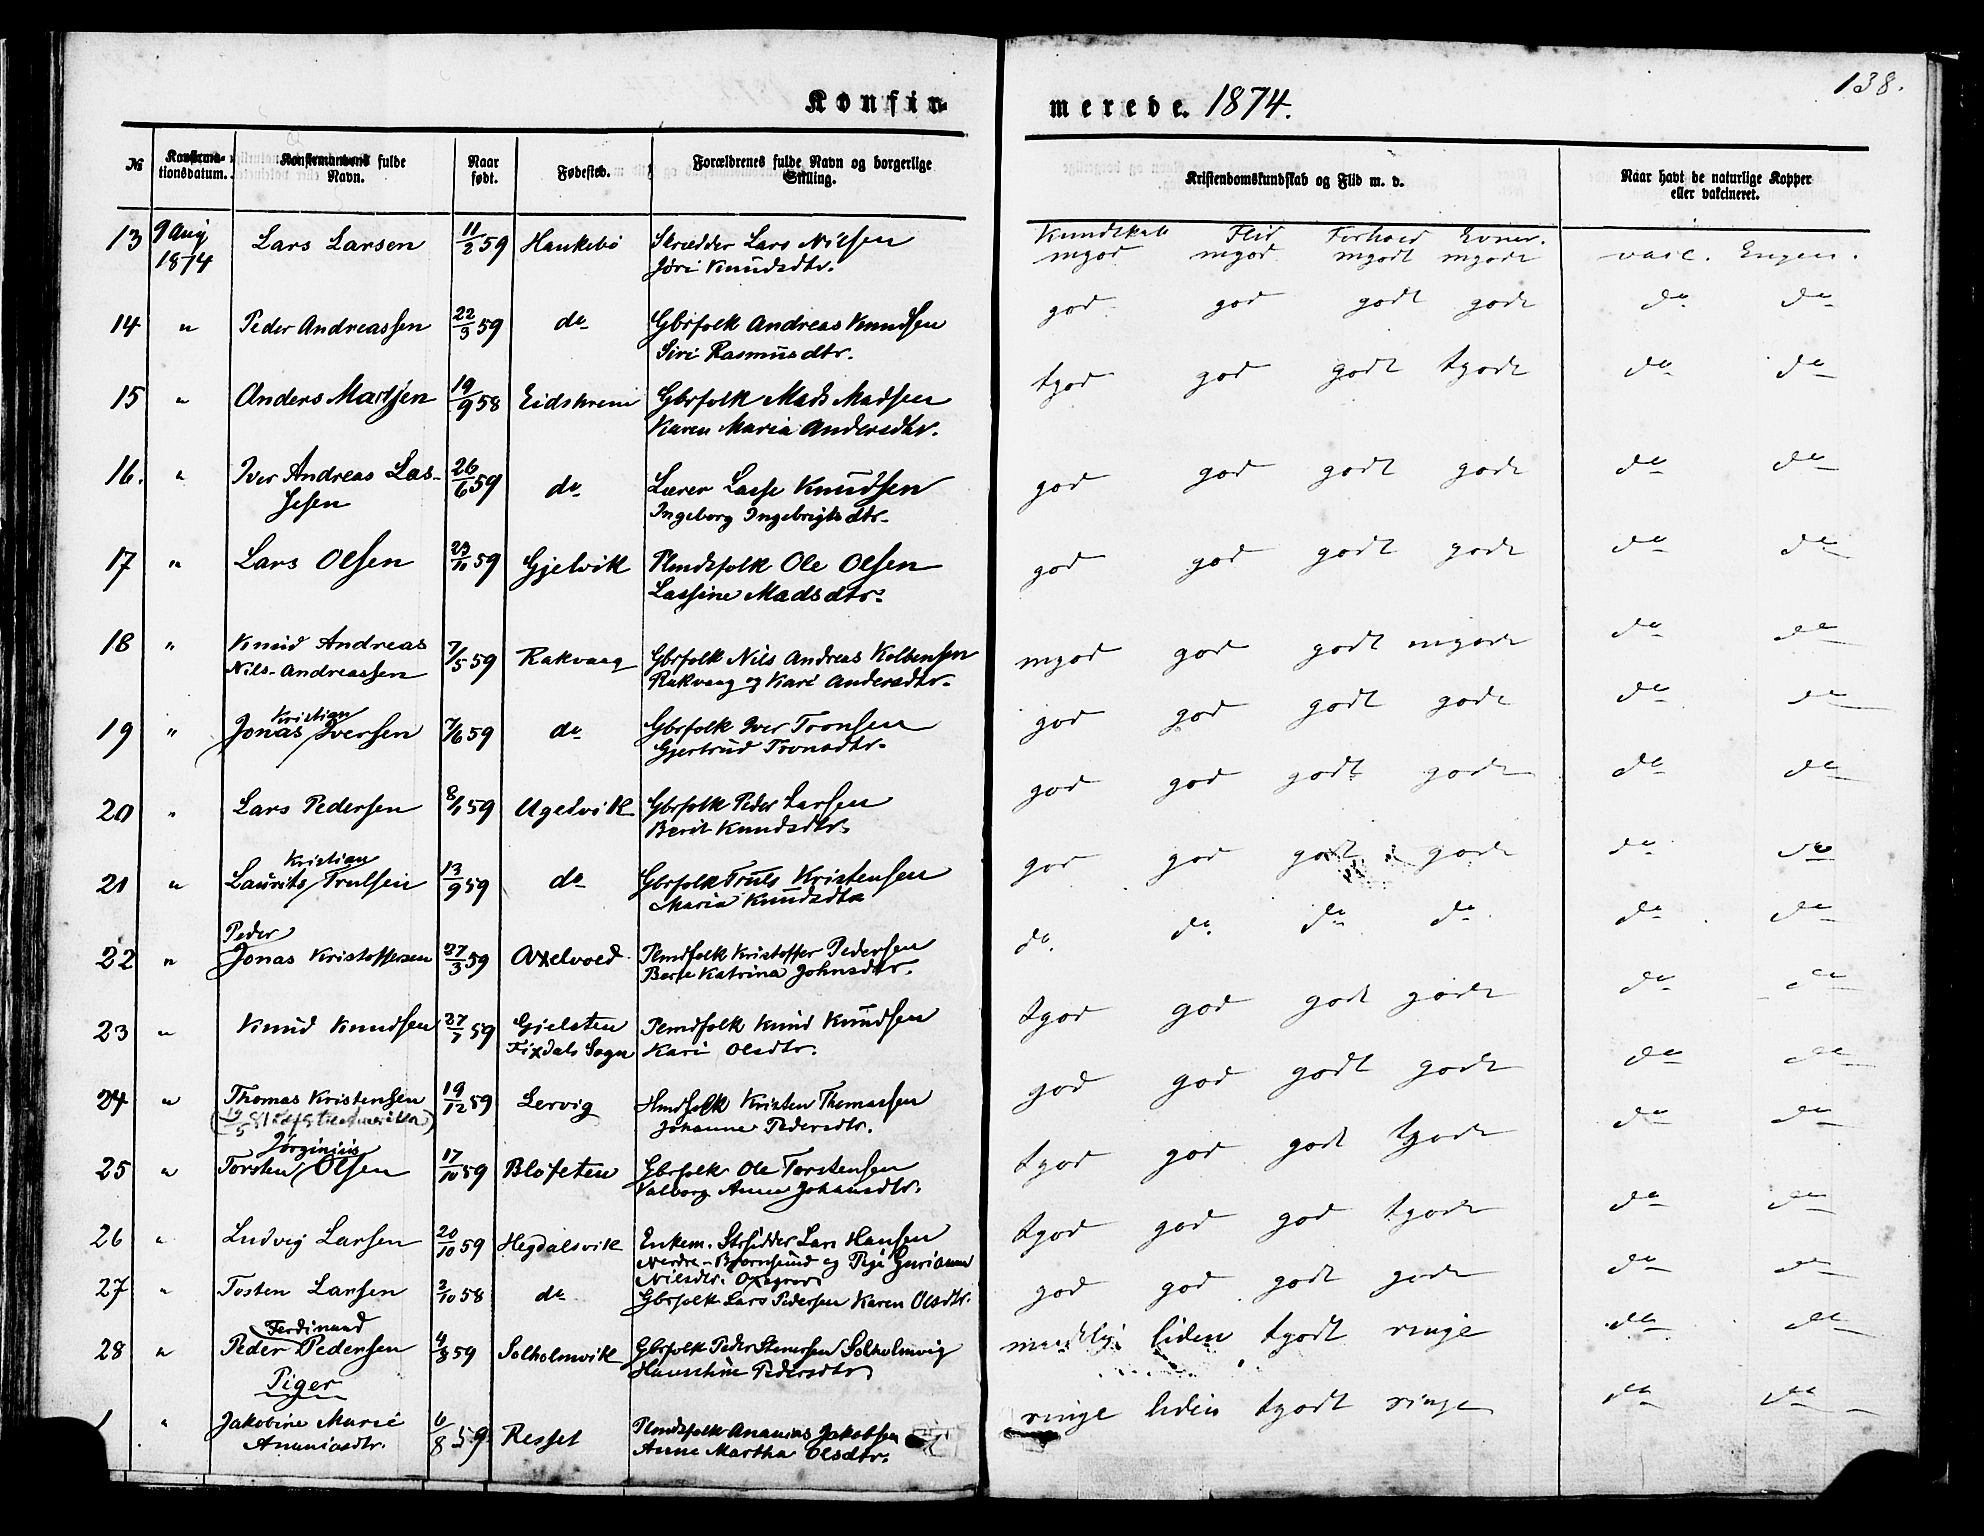 138.
Konfir-
merede. 1874.
№ Konfirma-tionsdatum. Konfirmandens fulde Navn. Naar født. Fødested. Forældrenes fulde Navn og borgerlige Stilling. Kristendomskundskab og Flid m. v. Naar havt de naturlige Kopper eller vakcineret.
Kundskab Flid Forhold Evner.
13 9 Aug 1874 Lars Larsen 11/2 59 Haukebø Skrædder Lars Nilsen mgod mgod mgodt mgode vacc. Eugen.
Jøri Knudsdtr.
14 " Peder Andreassen 22/3 59 do Gbrfolk Andreas Knudsen god god godt gode do do
Siri Rasmusdtr.
15 " Anders Madsen 19/9 58 Eidskrem Gbrfolk Mads Madsen tgod god godt tgode do do
Karen Maria Andersdtr.
16. " Iver Andreas Las- 26/6 59 do Lærer Lasse Knudsen god god godt gode do do
sesen Ingeborg Ingebrigtsdtr.
17 " Lars Olsen 23/10 59 Gjelvik Plmdsfolk Ole Olsen god god godt gode do do
Lassine Madsdtr.
18 " Knud Andreas 7/5 59 Rakvaag Gbrfolk Nils Andreas Kolbensen mgod god godt mgode do do
Nils-Andreassen Rakvaag og Kari Andersdtr.
Kristian
19 " Jonas Iversen 7/6 59 do Gbrfolk Iver Tronsen god god godt gode do do
Gjertrud Tronsdtr.
20 " Lars Pedersen 8/1 59 Ugelvik Gbrfolk Peder Larsen god god godt gode do do
Berit Knudsdtr.
Kristian
21 " Laurits Trulsen 13/9 59 do Gbrfolk Truls Kristensen god god godt gode do do
Maria Knudsdtr
Peder
22 " Jonas Kristoffersen 27/3 59 Oxelvoed Plmdfolk Kristoffer Pedersen do. do. do do do do
Katrina Johnsdtr.
23 " Knud Knudsen 27/7 59 Gjelsten Plmdfolk Knud Knudsen tgod god godt gode do do
Fixdals Sogn Kari Olsdtr.
24 " Thomas Kristensen 19/12 59 Lervig Hmdfolk Kristen Thomassen god god godt gode do do
Johanne Pedersdtr.
Jørginius
25 " Torsten Olsen 17/10 59 Bløfeten Gbrfolk Ole Torstensen tgod god godt tgode do do
Valborg Anne Johansdtr.
26 " Ludvig Larsen 20/10 59 Hegdalsvik Enkem. Skrædder Lars Hansen tgod god god tgode do do
Nordre-Bjørnsund og Pige Gurianna
Nilsdtr.
27 " Tosten Larsen 2/10 58 do Gbrfolk Lars Pedersen Karen Olsdtr. god god godt gode do do
Ferdinand
28 " Peder Pedersen 4/8 59 Solholmvik Gbrfolk Peder Stenersen Solholmvig liden tgodt ringe do do
Pedersdtr
Piger
1 " Jakobine Marie 6/8 59 Resset Plmdsfolk Ananias Jakobsen ringe liden tgodt ringe do do
Ananiasdtr. Anne Martha Olsdtr.